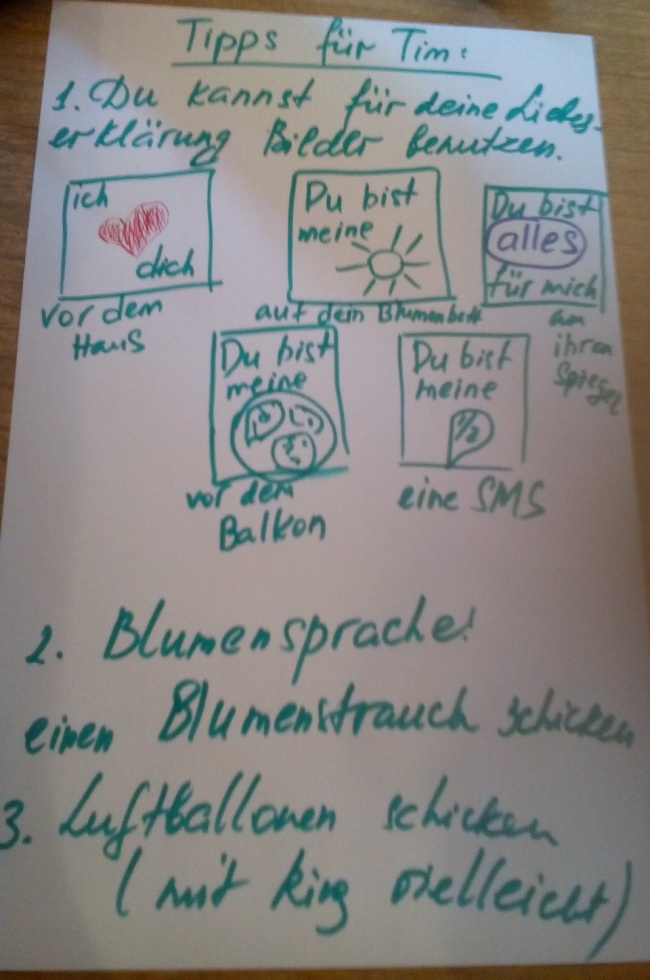 Tipps für Tim:
1. Du kannst für deine Liebes-
erklärung Bilder benutzen.
ich
dich
vor dem
Haus
Du bist
meine
auf dein Blumenbett
Du bist
alles
für mich
am
ihren
Spiegel
Du bist
meine
vor dem
Balkon
Du bist
meine
1/2
eine SMS
2. Blumensprache!
einen Blumenstrauch schicken
3. Luftballonen schicken
(mit Ring vielleicht)